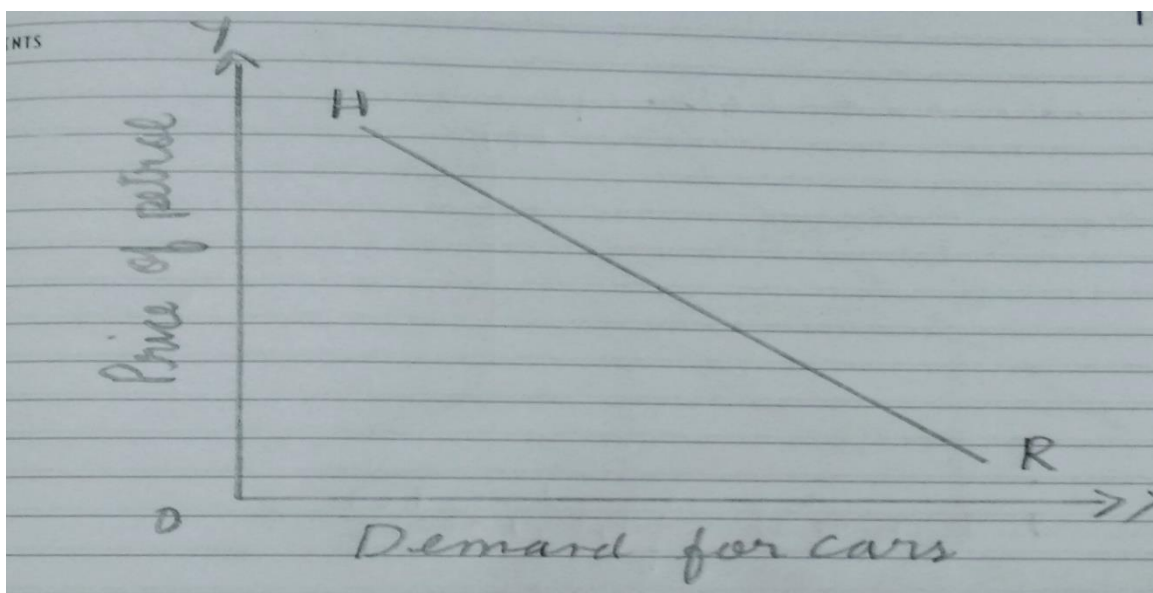 ENTS
Y
H
Price of petrol
R
O
Demand for cars